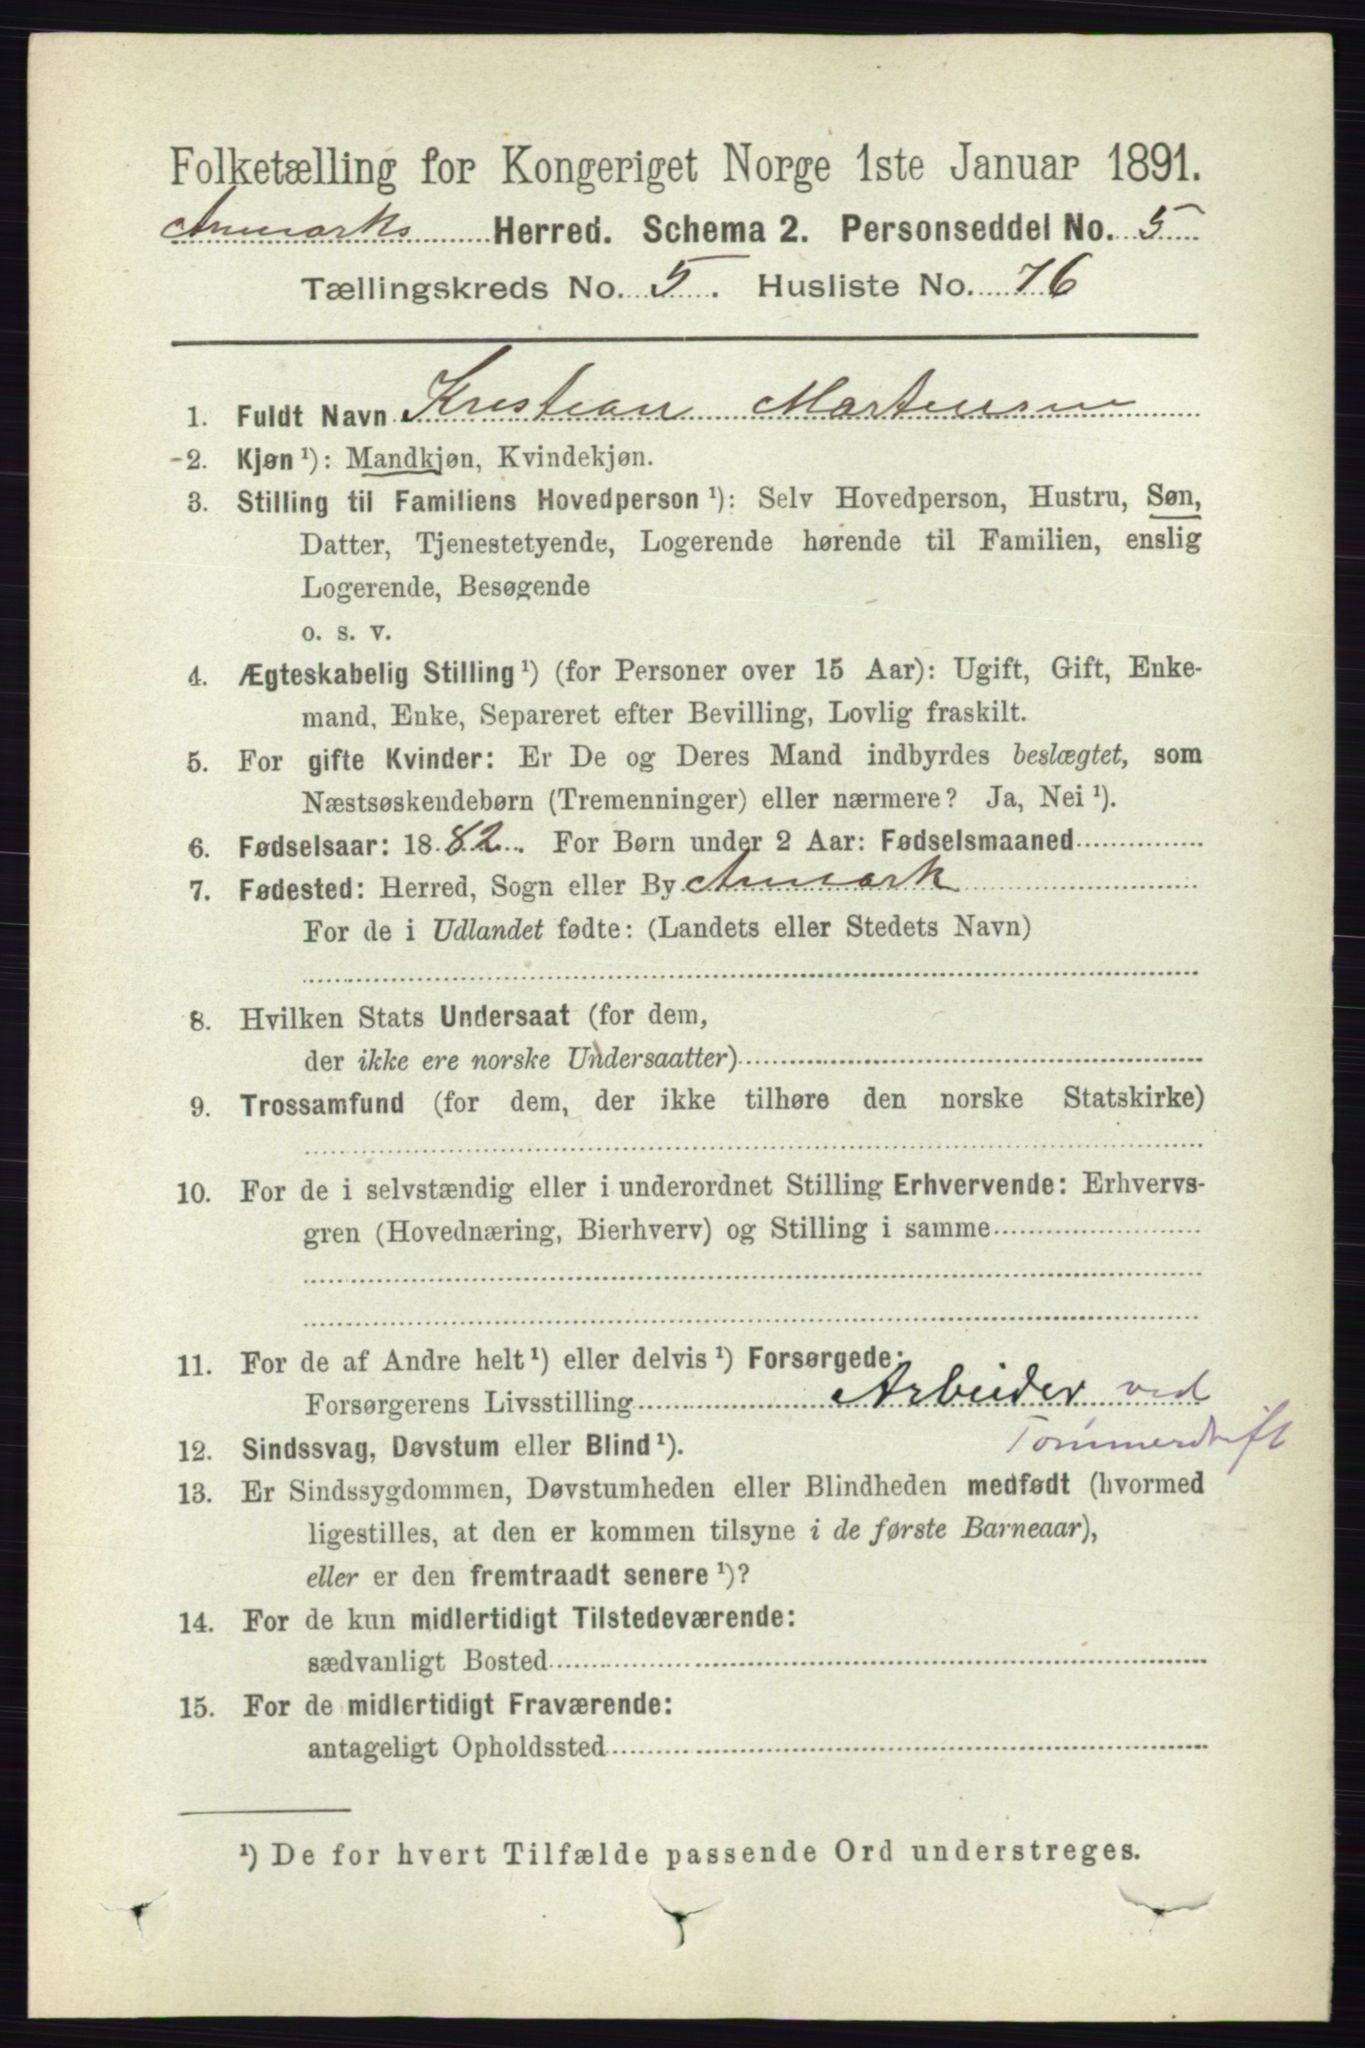 Folketælling for Kongeriget Norge 1ste Januar 1891.
Aremarks Herred. Schema 2. Personseddel No. 5
Tællingskreds No. 5. Husliste No. 76
1. Fuldt Navn Kristian Martensen
2. Kjøn ¹): Mandkjøn, Kvindekjøn.
3. Stilling til Familiens Hovedperson ¹): Selv Hovedperson, Hustru, Søn,
Datter, Tjenestetyende, Logerende hørende til Familien, enslig
Logerende, Besøgende
o. s. v.
4. Ægteskabelig Stilling ¹) (for Personer over 15 Aar): Ugift, Gift, Enke-
mand, Enke, Separeret efter Bevilling, Lovlig fraskilt.
5. For gifte Kvinder: Er De og Deres Mand indbyrdes beslægtet, som
Næstsøskendebørn (Tremenninger) eller nærmere? Ja, Nei ¹).
6. Fødselsaar: 1882. For Børn under 2 Aar: Fødselsmaaned
7. Fødested: Herred, Sogn eller By Aremark
For de i Udlandet fødte: (Landets eller Stedets Navn)
8. Hvilken Stats Undersaat (for dem,
der ikke ere norske Undersaatter)
9. Trossamfund (for dem, der ikke tilhøre den norske Statskirke)
10. For de i selvstændig eller i underordnet Stilling Erhvervende: Erhvervs-
gren (Hovednæring, Bierhverv) og Stilling i samme
11. For de af Andre helt ¹) eller delvis ¹) Forsørgede:
Forsørgerens Livsstilling Arbeider ved
Tømmerdrift
12. Sindssvag, Døvstum eller Blind ¹).
13. Er Sindssygdommen, Døvstumheden eller Blindheden medfødt (hvormed
ligestilles, at den er kommen tilsyne i de første Barneaar),
eller er den fremtraadt senere ¹)?
14. For de kun midlertidigt Tilstedeværende:
sædvanligt Bosted
15. For de midlertidigt Fraværende:
antageligt Opholdssted
¹) De for hvert Tilfælde passende Ord understreges.